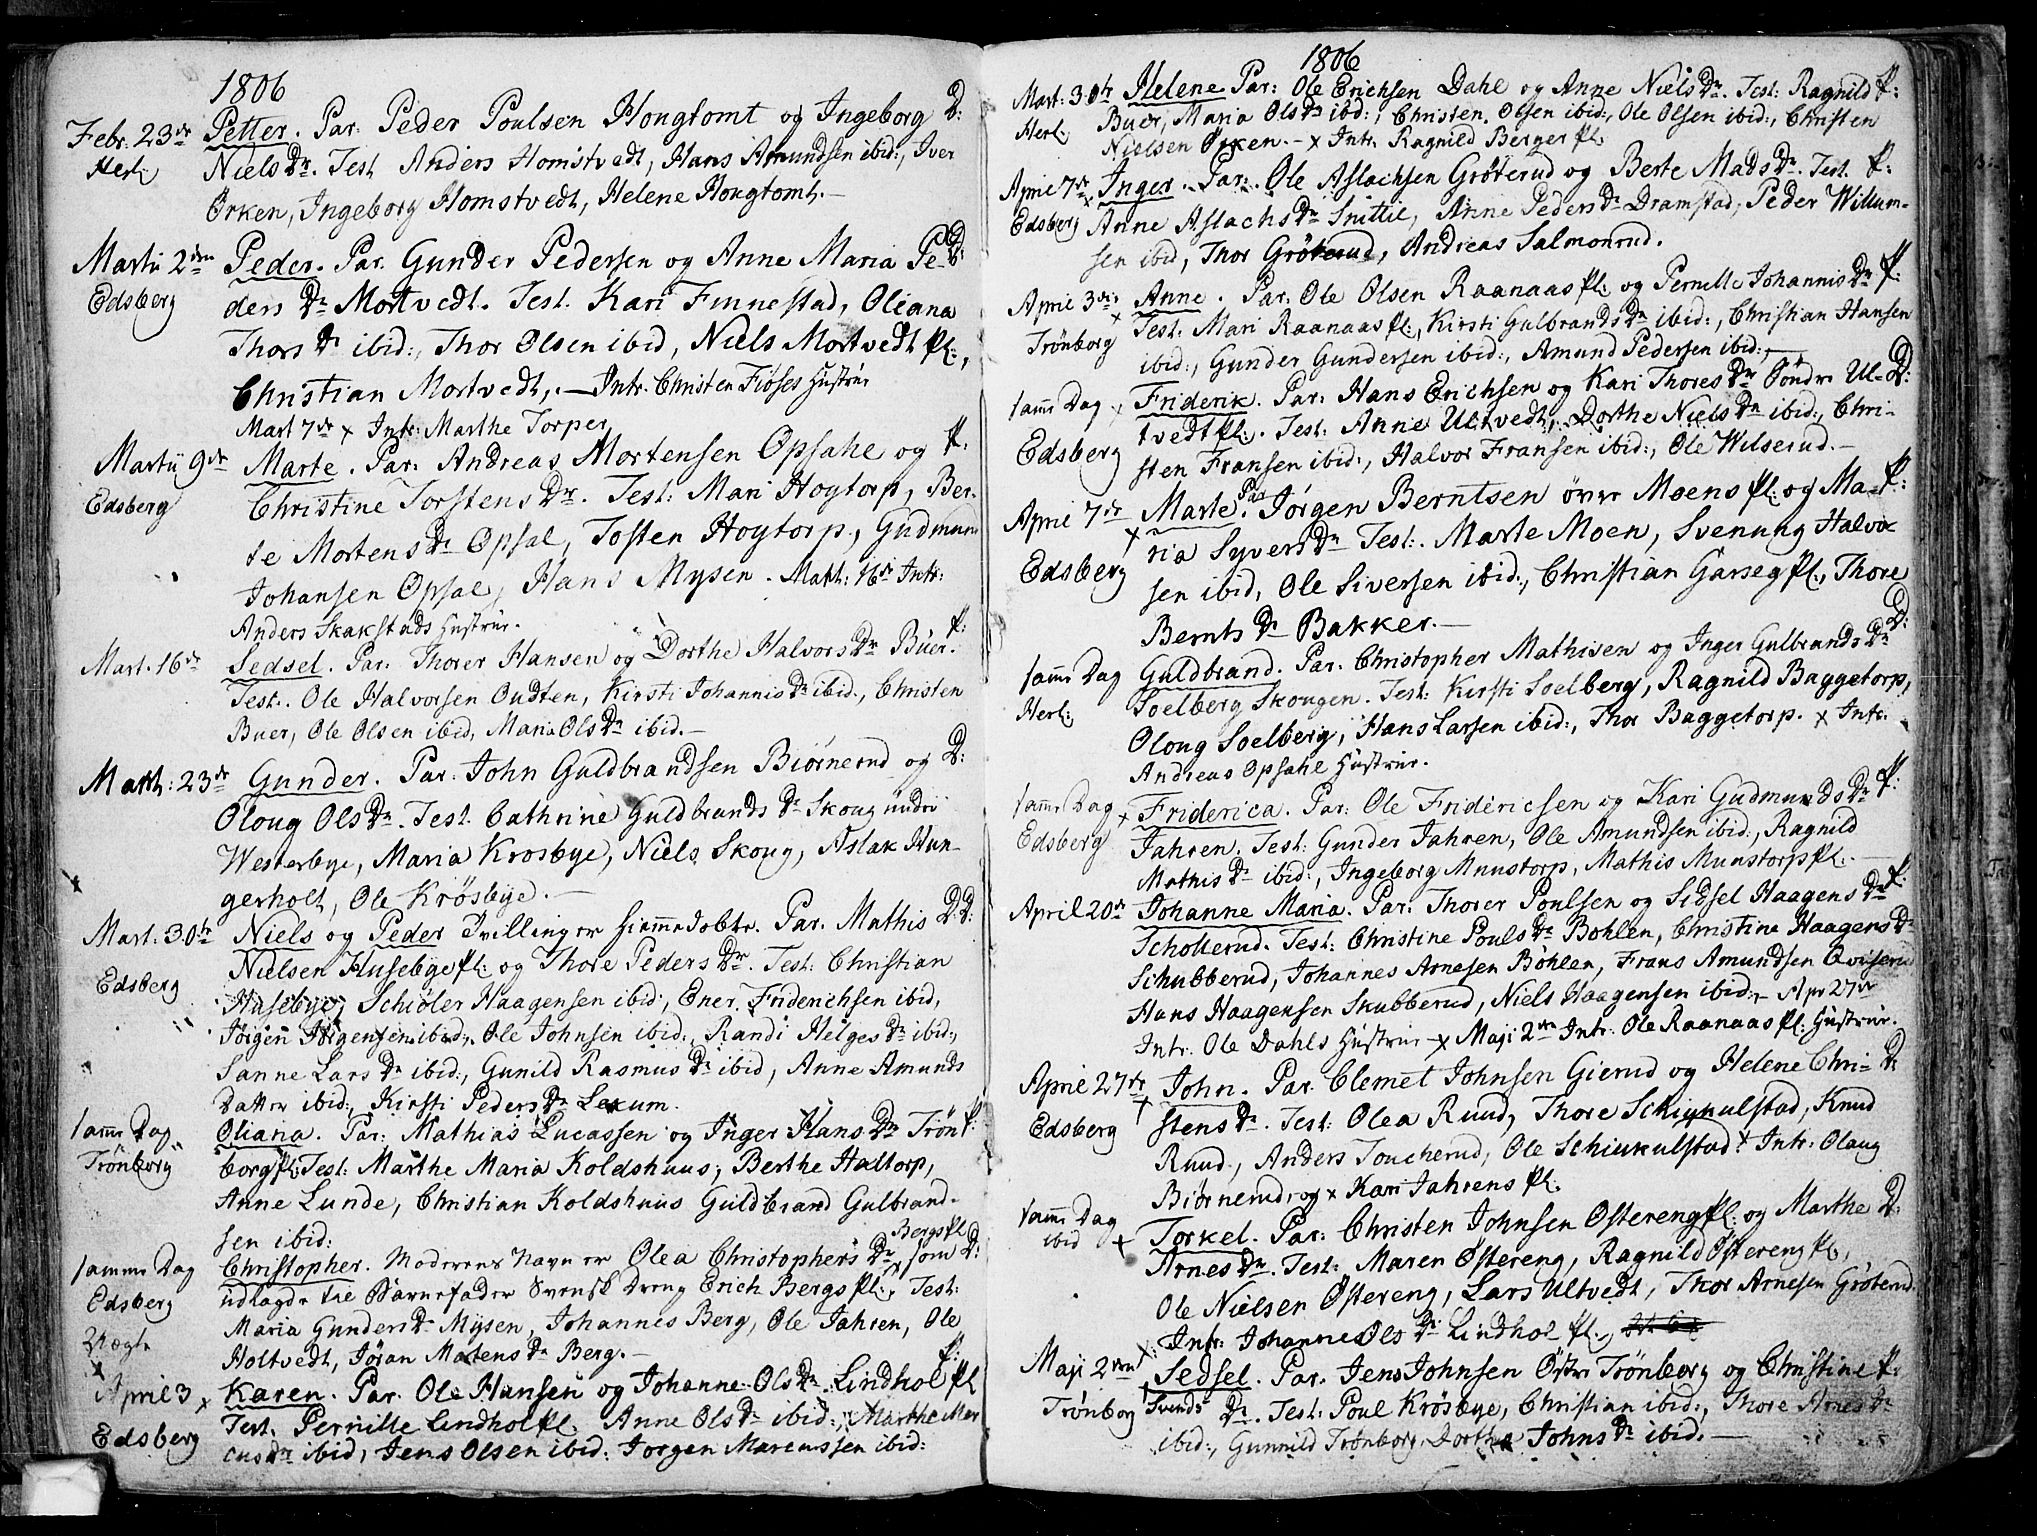 1806
Febr. 23de Petter. Par. Peder Poulsen Hougtomt og Ingeborg D:
Herl: Niels Dr. Test. Anders Homstvedt, Hans Amundsen ibid:, Iver
Örken, Ingeborg Homstvedt, Helene Hougtomt.—
Martii 2den Peder. Par. Gunder Pedersen og Anne Maria Pe- D:
Edsberg ders Dr Mortvedt. Test. Kari Finnestad, Oliana
Thors Dr ibid:, Thor Olsen ibid, Niels Mortvedt Pl:,
Christian Mortvedt,.— Intr. Christen Fiöses Hustrue
Mart 7de x Intr: Marthe Torper
Martii 9de Marte. Par. Andreas Mortensen Opsahl og P:
Edsberg Christine Torstens Dr. Test: Mari Hoytorp, Ber-
te Mortens Dr Opsal, Tosten Hoytorp, Gudmund
Johansen Opsal, Hans Mysen. Mart: 16de Intr:
Anders Skakstads Hustrue.
Mart. 16de Sedsel. Par. Thorer Hansen og Dorthe Halvors Dr Buer. P:
Test. Ole Halvorsen Oudten, Kirsti Johannis Dr ibid:, Christen
Buer, Ole Olsen ibid, Maria Ols Dr ibid.—
Mart: 23de Gunder. Par. John Guldbrandsen Biörnerud og D:
Oloug Ols Dr. Test. Cathrine Guldbrands Dr Skoug under
Westerbye, Maria Krosbye, Niels Skoug, Aslak Hun-
gerholt, Ole Krösbye.—
Mart. 30te Niels og Peder Tvillinger hiemmedöbte. Par. Mathis D:D:
Edsberg Nielsen Husebye Pl: og Thore Peders Dr. Test: Christian
Husebye, Schiöler Haagensen ibid:, Ener Friderichsen ibid,
Jörgen Jörgensen ibid:, Ole Johnsen ibid:, Randi Helges Dr ibid:,
Sanne Lars Dr ibid:, Gunild Rasmus Dr ibid, Anne Amunds
Datter ibid:, Kirsti Peders Dr Lexum.
samme Dag Oliana. Par: Mathias Lucassen og Inger Hans Dr Trön- P:
Trönborg borg Pl: Test: Marthe Maria Koldshuus, Berthe Haltorp,
Anne Lunde, Christian Koldshuus Guldbrand Gulbrand-
sen ibid: Bergs Pl
samme Dag Christopher. Moderens Navn er Olea Christophers Dr, som D:
Edsberg udlagde til Barnefader Svensk Dreng Erich Bergs Pl:, Test:
Uægte Maria Gunders Dr Mysen, Johannes Berg, Ole Jahren, Ole
Holtvedt, Jöran Matens Dr Berg.—
April 3 x Karen. Par. Ole Hansen og Johanne Ols Dr Lindhol Pl P:
Edsberg Test. Pernille Lindhol Pl. Anne Ols Dr ibid:, Marthe Mar
cus Dr ibid, Jens Olsen ibid: Jorgen Marcussen ibid:
1806
Mart: 30te Helene Par: Ole Erichsen Dahl og Anne Niels Dr. Test. Ragnild P:
Herl: Buer, Maria Ols Dr ibd:, Christen Olsen ibid:, Ole Olsen ibid:, Christen
Nielsen Örken.— x Intr. Ragnild Berger Pl.
April 7de x Inger. Par. Ole Aslachsen Gröterud og Berte Mads Dr. Test. P:
Edsberg Anne Aslachs Dr Snittil, Anne Peders Dr Dramstad, Peder Willum-
sen ibid, Thor Gröterud, Andreas Salmonrud.
April 3die x Anne. Par. Ole Olsen Raanaas Pl: og Pernille Johannis Dr P:
Trönborg Test: Mari Raanaas Pl:, Kirsti Gulbrands Dr ibid:, Christian Hansen
ibid:, Gunder Gundersen ibid:, Amund Pedersen ibid:,—
samme Dag x Friderik. Par. Hans Erichsen og Kari Thores Dr Söndre Ul- D:
Edsberg tvedt Pl:. Test. Anne Ultvedt, Dorthe Niels Dr ibid:, Chri-
sten Fransen ibid:, Halvor Fransen ibid:, Ole Wilserud.—
April 7de x Marte. Par Jörgen Berntsen över Moens Pl: og Ma- P:
Edsberg ria Syvers Dr Test:. Marte Moen, Svenung Halvor
sen ibid, Ole Siversen ibid:, Christian Garseg Pl:, Thore
Bernts Dr Bakker.—
samme Dag Guldbrand. Par. Christopher Mathisen og Inger Gulbrands Dr D:
Herl: Soelberg Skougen. Test: Kirsti Soelberg, Ragnild Baggetorp,
Oloug Soelberg, Hans Larsen ibid:, Thor Baggetorp. x Intr.
Andreas Opsahl Hustrue.
samme Dag x Friderica. Par: Ole Fridericsen og Kari Gudmunds Dr P:
Edsberg Jahren. Test: Gunder Jahren, Ole Amundsen ibid:, Ragnild
Mathis Dr ibid:, Ingeborg Munstorp, Mathis Munstorp Pl:.—
April 20de Johanne Maria. Par: Thorer Poulsen og Sidsel Haagens Dr P:
Schollerud. Test: Christine Pouls Dr Bohlen, Christine Haagens Dr
Schubberud, Johannes Arnesen Böhlen, Frans Amundsen Qviserud
Hans Haagensen Skubberud, Niels Haagensen ibid:— Apr 27de
Intr. Ole Dahls Hustrue — x Maji 2den Intr. Ole Raanaas Pl: Hustrue.
April 27de x John. Par. Clemet Johnsen Gierud og Helene Chri- D:
Edsberg stens Dr. Test: Olea Ruud, Thore Schiukulstad, Knud
Ruud, Anders Toucherud, Ole Schiukulstad. x Intr: Olaug
Biörnerud, og x Kari Jahrens Pl.
samme Dag x Torkel. Par: Christen Johnsen Ostereng Pl: og Marthe D:
ibid Arnes Dr. Test: Maren Östereng, Ragnild Östereng Pl,
Ole Nielsen Östereng, Lars Ultvedt, Thor Arnesen Gröterud.
x: Intr: Johanne Ols Dr Lindhol Pl.,
Maji 2den x Sedsel. Par. Jens Johnsen Östr Trönborg og Christine P:
Trönborg Svends Dr. Test: Poul Krösbye, Christian ibid:, Thore Arnes Dr
ibid:, Gunnild Trönborg, Dorthe Johns Dr ibid.—